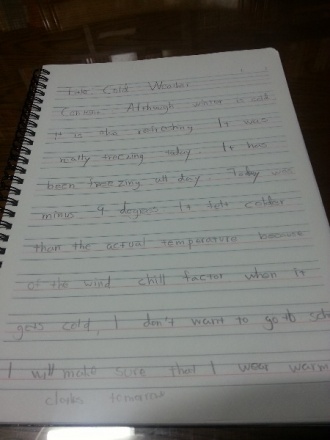 Cold Weather
Although winter is cold
it is the refreshing It was
really freezing today. It has
been freezing all day Today was
minus 9 degrees It felt colder
than the actual temperature because
of the wind chill factor when it
gets cold, I don't want to go to
I will make sure that I wear warm